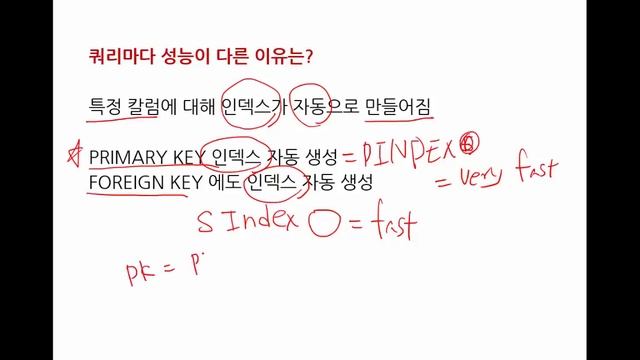 쿼리마다 성능이 다른 이유는?
특정 칼럼에 대해 인덱스가 자동으로 만들어짐
PRIMARY KEY 인덱스 자동 생성 = PINDEX
= very fast
FOREIGN KEY 에도 인덱스 자동 생성
S Index = fast
PK = P